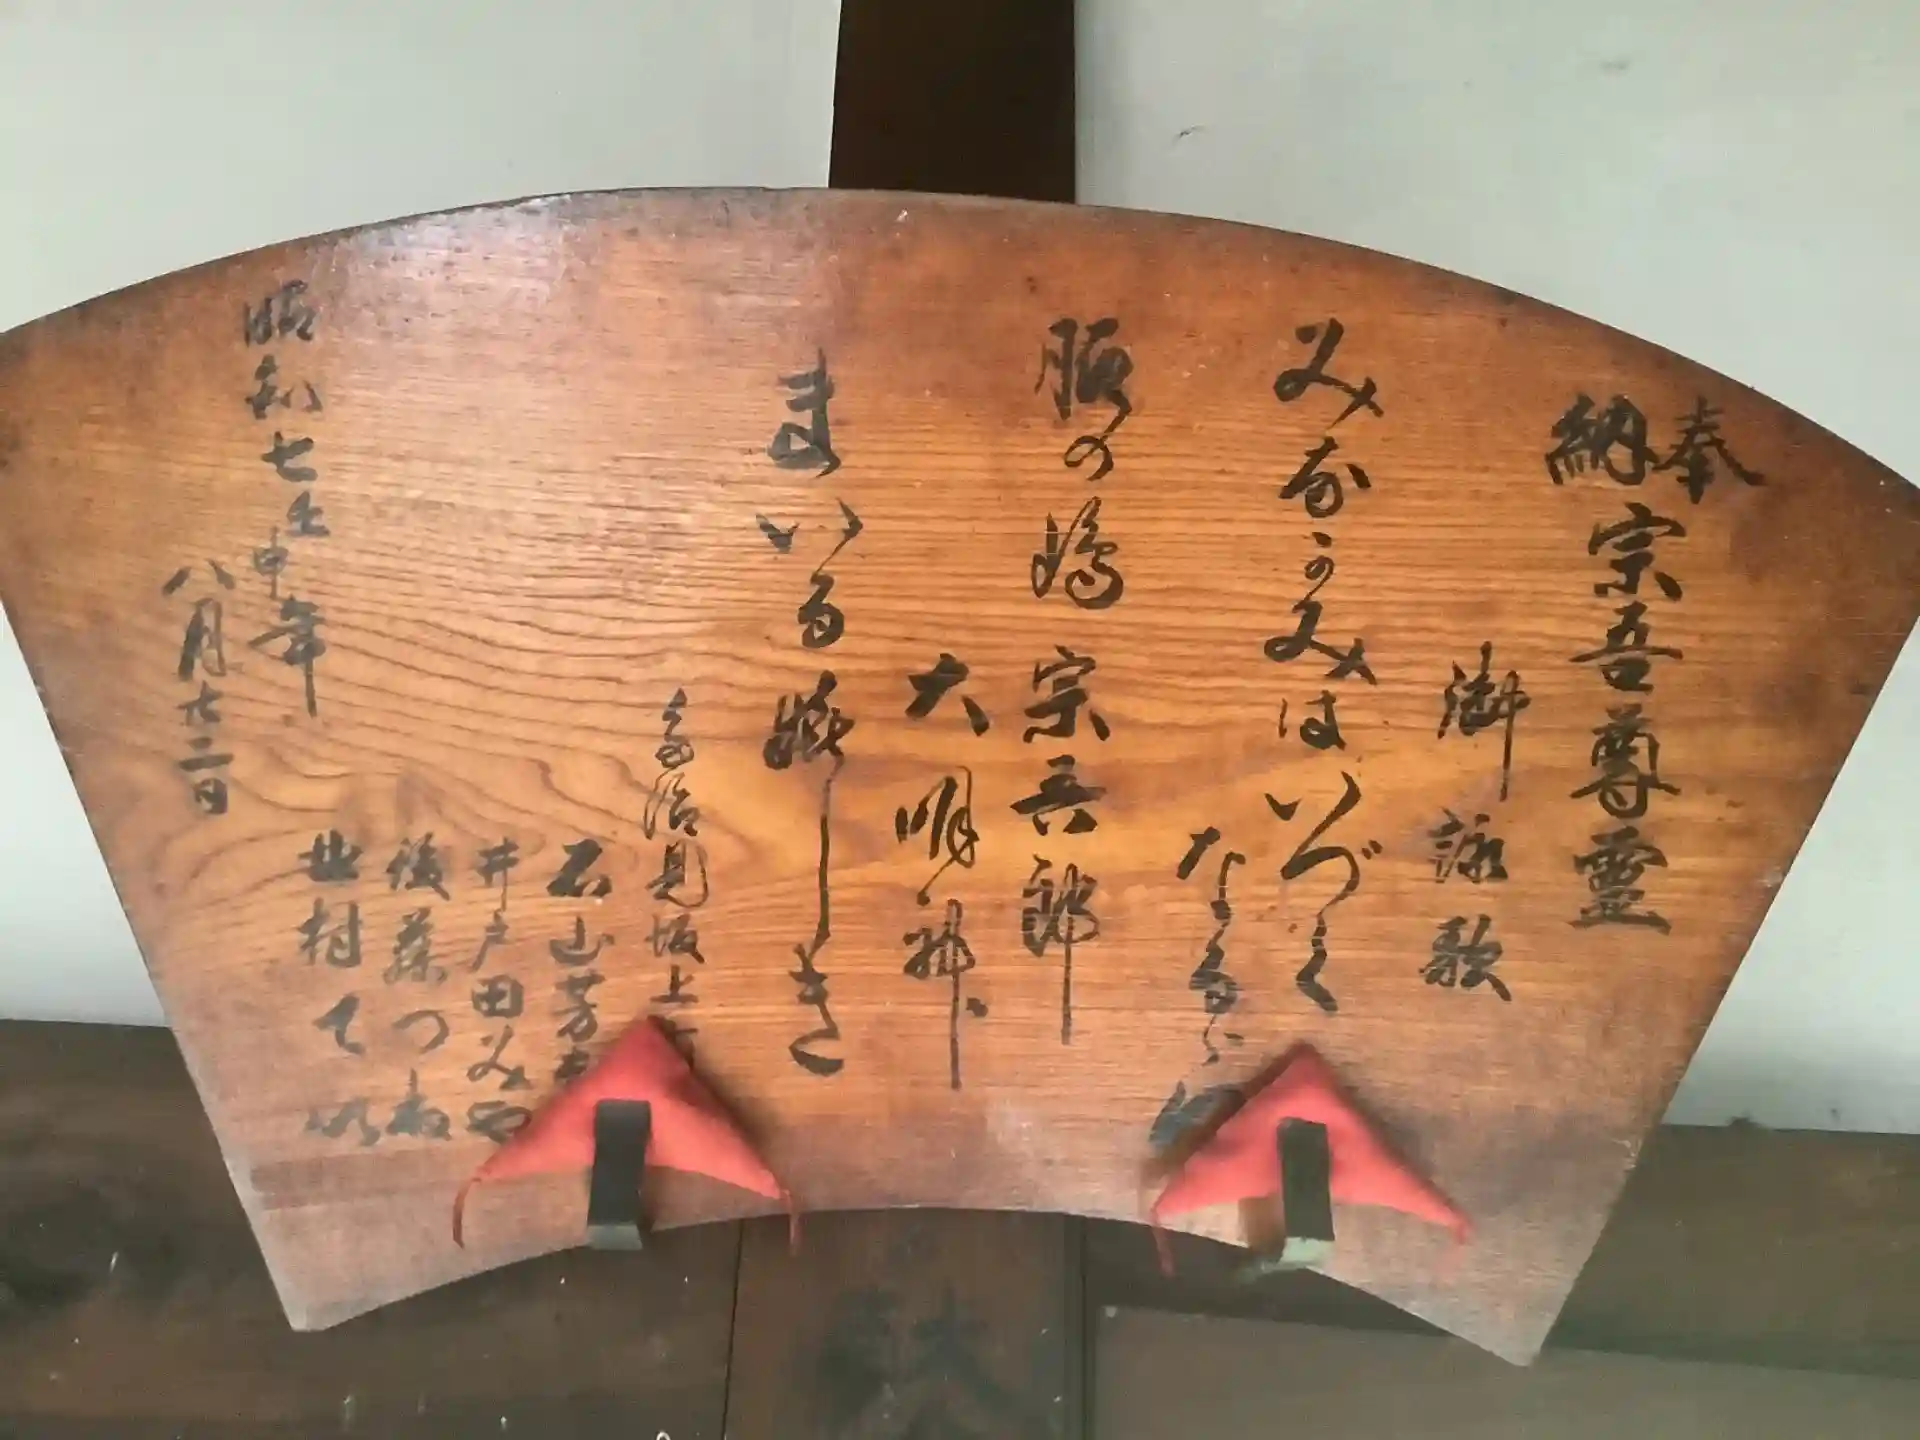 奉納 宗吾尊霊
御詠歌
みなかみはいづく
なるら
の嶋宗吾郎
大明神
まいる嬉しき
多治見坂上
石山芳
井戸田みや
後藤つね
村て
昭和七壬申年
八月廿二日